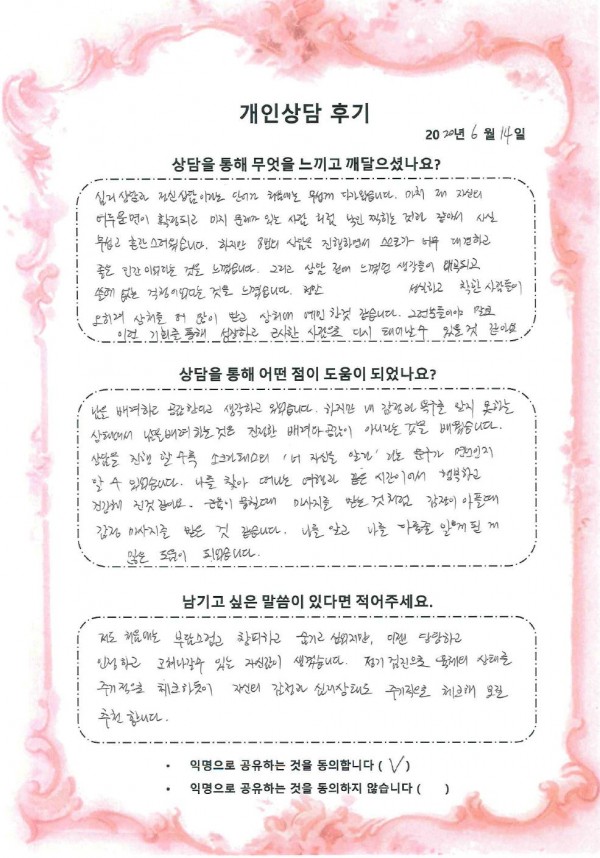 개인상담 후기
2020년 6월 14일
상담을 통해 무엇을 느끼고 깨달으셨나요?
심리상담과 정신상담이라는 단어가 처음에는 무섭게 다가왔습니다. 마치 제 자신의
어두운면이 확장되고 마치 문제가 있는 사람 처럼 낙인 찍히는 것만 같아서 사실
무섭고 혼란스러웠습니다. 하지만 8번의 상담을 진행하면서 스스로가 너무 대견하고
좋은 인간이라는 것을 느꼈습니다. 그리고 상담 전에 느꼈던 생각들이 왜곡되고
쓸데 없는 걱정이었다는 것을 느꼈습니다. 세심하고 착한 사람들이
오히려 상처를 더 많이 받고 상처에 예민한것 같습니다. 그런분들이야 말로
이런 기회를 통해 성장하고 근사한 사람으로 다시 태어날수 있을 것 같아요
상담을 통해 어떤 점이 도움이 되었나요?
남을 배려하고 공감한다고 생각하고 있었습니다. 하지만 내 감정과 욕구를 알지 못하는
상태에서 남을 배려하는것은 진정한 배려와 공감이 아니라는 것을 배웠습니다.
상담을 진행 할 수록 소크라테스의 '너 자신을 알라' 라는 문구가 뭔지
알 수 있었습니다. 나를 찾아 떠나는 여행과 같은 시간이어서 행복하고
건강해 진것 같아요. 근육이 뭉칠때 마사지를 받는것처럼 감정이 아플때
감정 마사지를 받은 것 같습니다. 나를 알고 나를 아픔을 알게 될 때
많은 도움이 되었습니다.
남기고 싶은 말씀이 있다면 적어주세요.
저도 처음에는 부담스럽고 창피하고 숨기고 싶었지만, 이젠 당당하고
인정하고 고쳐나갈수 있는 자신감이 생겼습니다. 정기 검진으로 육체의 상태를
주기적으로 체크하듯이 자신의 감정과 심리상태도 주기적으로 체크해 보길
추천 합니다.
• 익명으로 공유하는 것을 동의합니다 ( √ )
• 익명으로 공유하는 것을 동의하지 않습니다 ( )